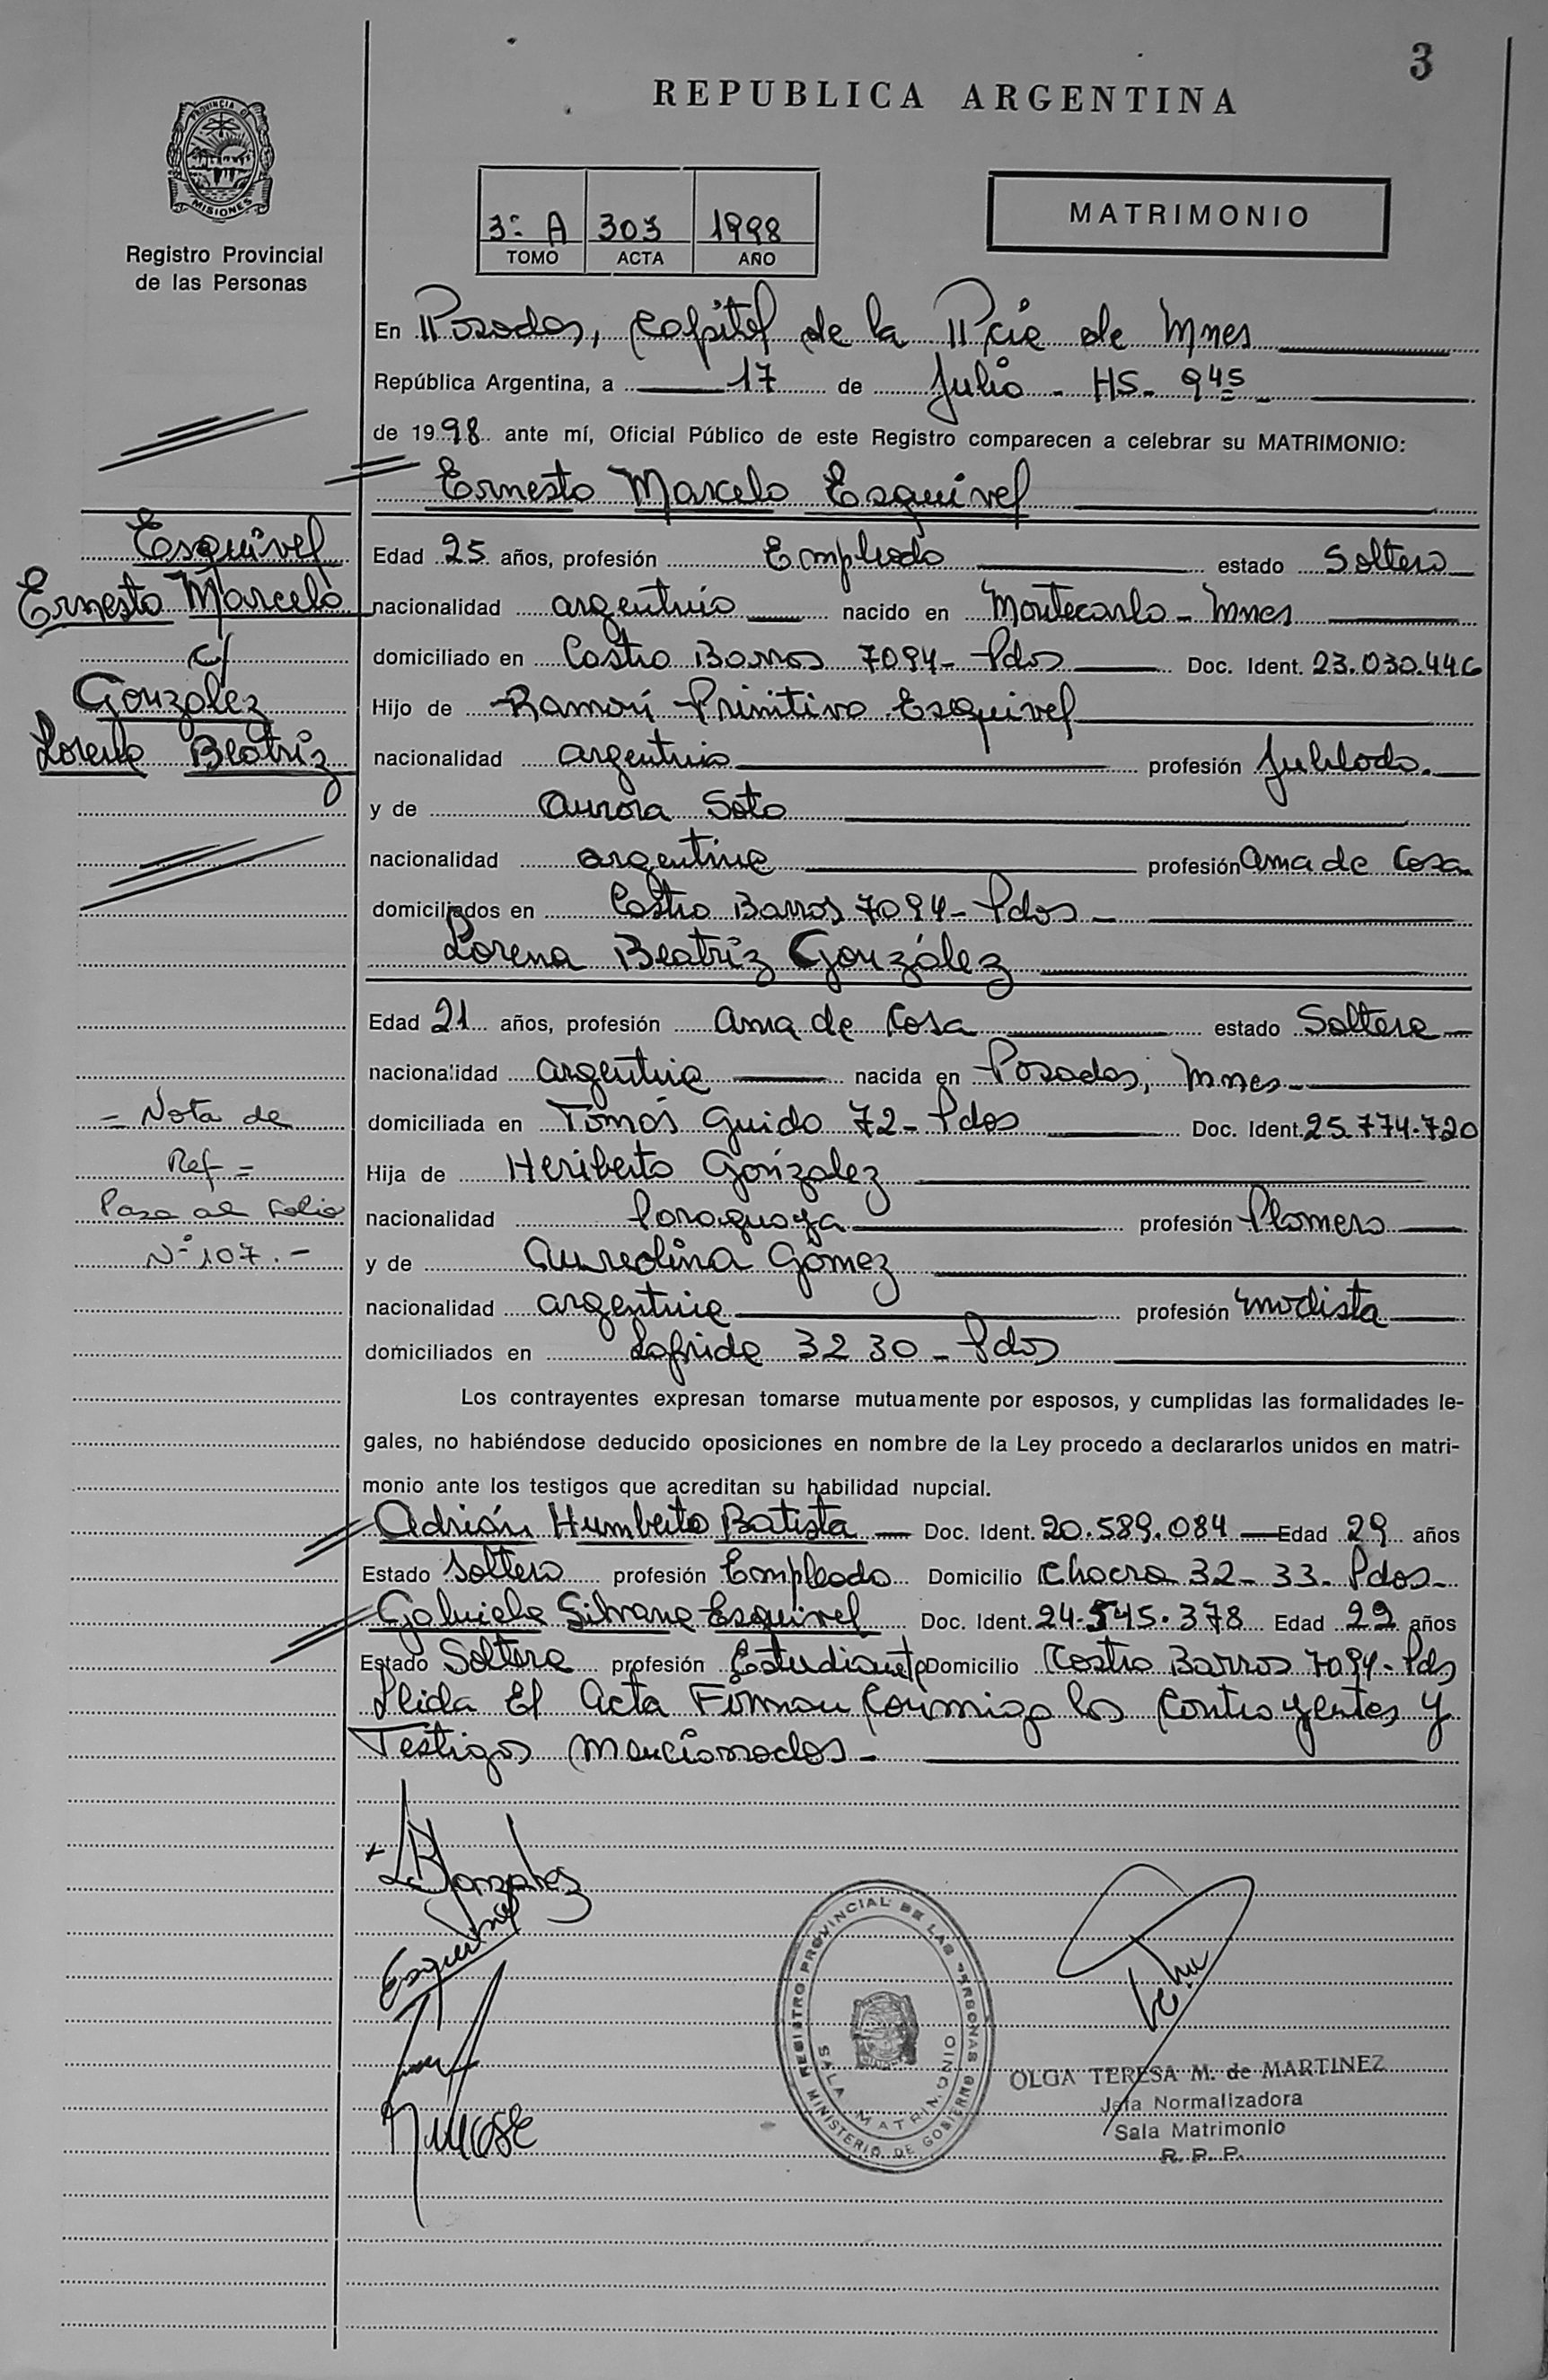 3
REPUBLICA ARGENTINA
PROVINCIA D
MISIONES
Registro Provincial
de las Personas
3º A 303 1998
TOMO ACTA AÑO
MATRIMONIO
En Posadas, Capital de la Pcia de Mnes
República Argentina, a 17 de Julio - HS - 9 45 -
de 1998 ante mí, Oficial Público de este Registro comparecen a celebrar su MATRIMONIO:
Ernesto Marcelo Esquivel
Esquivel
Ernesto Marcelo
c/
González
Lorena Beatriz
Edad 25 años, profesión Empleado estado Soltero
nacionalidad argentina nacido en Montecarlo - Mnes
domiciliado en Castro Barros 7094 - Pdas Doc. Ident. 23.030.446
Hijo de Ramón Primitivo Esquivel
nacionalidad argentina profesión Jubilado.
y de Aurora Soto
nacionalidad argentina profesión ama de Casa
domiciliados en Castro Barros 7094 - Pdas -
Lorena Beatriz González
Edad 21 años, profesión ama de Casa estado Soltera
nacionalidad argentina nacida en Posadas, Mnes -
domiciliada en Tomás Guido 72 - Pdas Doc. Ident. 25.774.720
Hija de Heriberto González
nacionalidad Paraguaya profesión Plomero
y de Aureolina Gómez
nacionalidad argentina profesión modista
domiciliados en 3230 - Pdas
= Nota de
Ref =
Pasa al Folio
Nº 107.-
Los contrayentes expresan tomarse mutuamente por esposos, y cumplidas las formalidades le-
gales, no habiéndose deducido oposiciones en nombre de la Ley procedo a declararlos unidos en matri-
monio ante los testigos que acreditan su habilidad nupcial.
Adrián Humberto Batista - Doc. Ident. 20.589.084 - Edad 29 años
Estado soltero profesión Empleado Domicilio Chacra 32-33 - Pdas -
Gabriela Silvana Esquivel Doc. Ident. 24.545.378 Edad 22 años
Estado Soltera profesión Estudiante Domicilio Castro Barros 7094 - Pds
Leida El acta Firman Conmigo los Contrayentes y
Testigos mencionados -
LBGonzalez
Esquivel
REGISTRO PROVINCIAL DE LAS PERSONAS
SALA MATRIMONIO
MINISTERIO DE GOBIERNO
OLGA TERESA M. de MARTINEZ
Jefa Normalizadora
Sala Matrimonio
R. P. P.